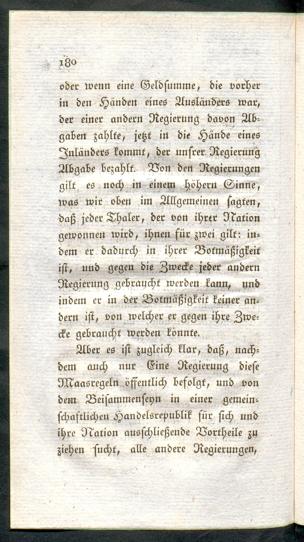 180
oder wenn eine Geldsumme, die vorher
in den Händen eines Ausländers war,
der einer andern Regierung davon Ab-
gaben zahlte, jetzt in die Hände eines
Inländers kommt, der unsrer Regierung
Abgabe bezahlt. Von den Regierungen
gilt es noch in einem höhern Sinne,
was wir oben im Allgemeinen sagten,
daß jeder Thaler, der von ihrer Nation
gewonnen wird, ihnen für zwei gilt: in-
dem er dadurch in ihrer Botmäßigkeit
ist, und gegen die Zwecke jeder andern
Regierung gebraucht werden kann, und
indem er in der Botmäßigkeit keiner an-
dern ist, von welcher er gegen ihre Zwe-
cke gebraucht werden könnte.
Aber es ist zugleich klar, daß, nach-
dem auch nur Eine Regierung diese
Maasregeln öffentlich befolgt, und von
dem Beisammenseyn in einer gemein-
schaftlichen Handelsrepublik für sich und
ihre Nation ausschließende Vortheile zu
ziehen sucht, alle andere Regierungen,